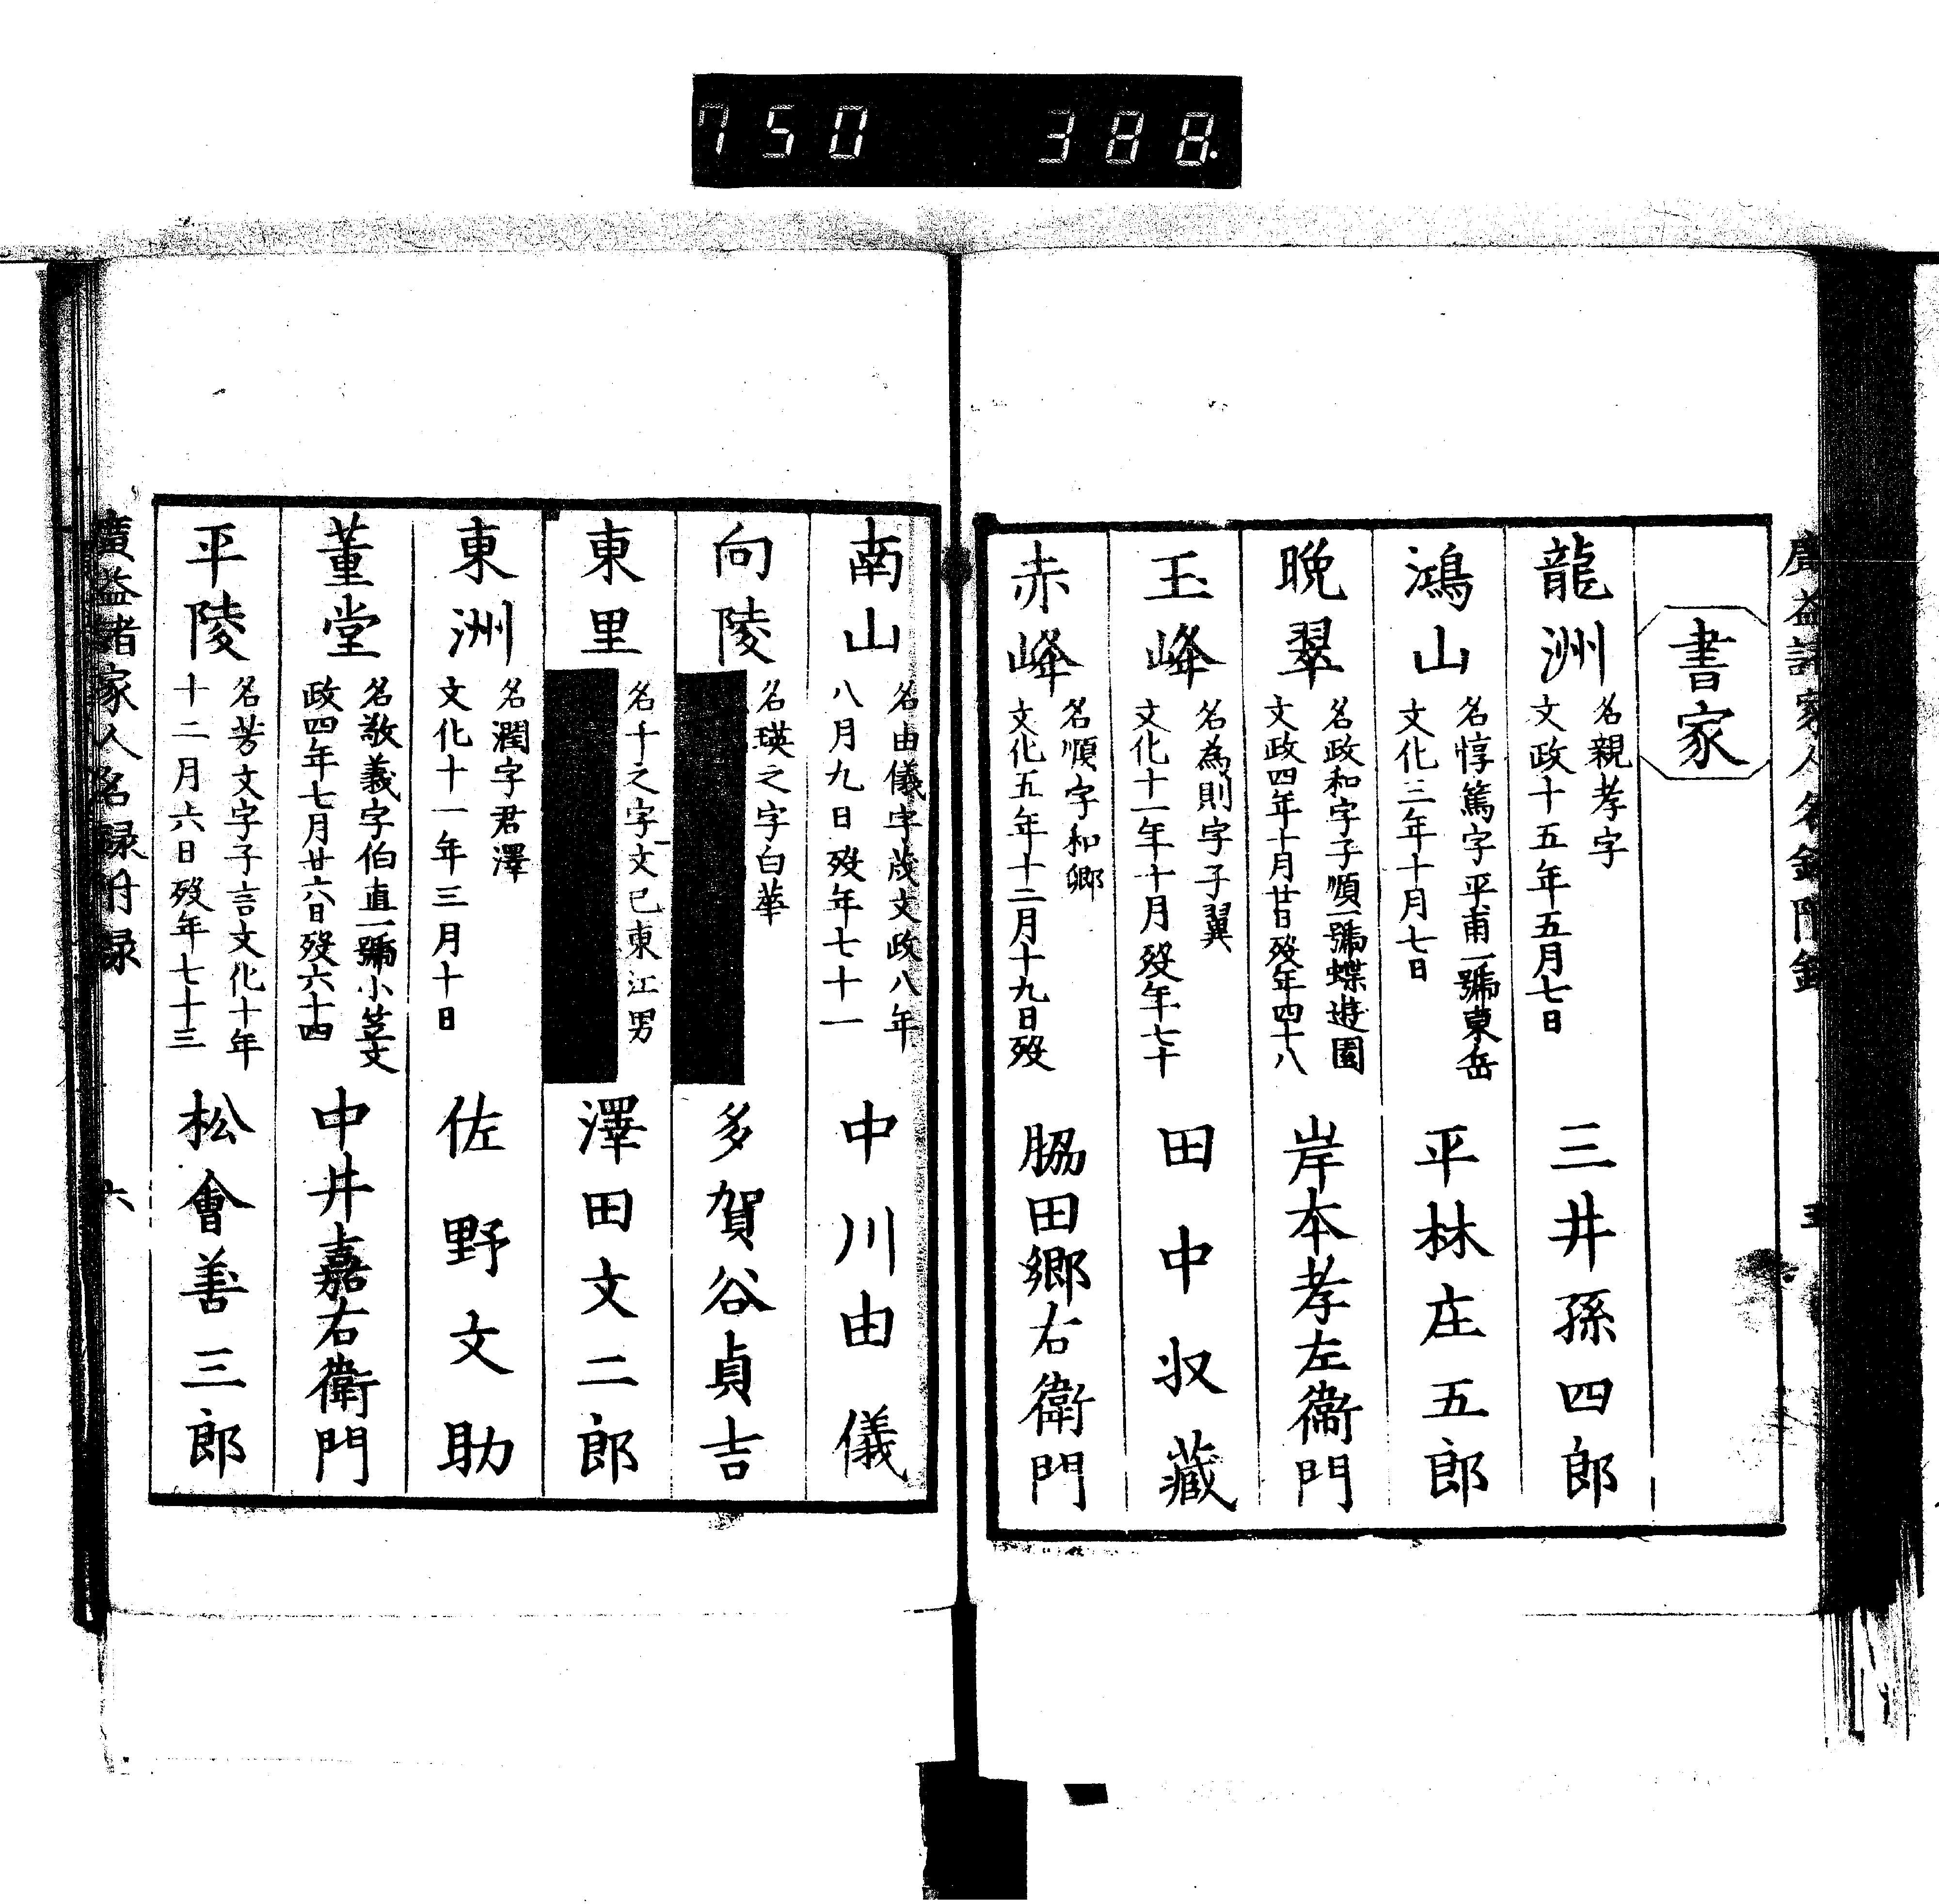 750 388.
廣益諸家人名録附録
五
書家
龍洲 名親孝字 文政十五年五月七日 三井孫四郎
鴻山 名惇篤字平甫一號東岳 文化三年十月七日 平林庄五郎
晩翠 名政和字子順一號蝶遊園 文政四年十月廿日歿年四十八 岸本孝左衞門
玉峰 名為則字子翼 文化十一年十月歿年七十 田中収藏
赤峰 名順字和卿 文化五年十二月十九日歿 脇田郷右衛門
南山 名由儀字 文政八年 八月九日歿年七十一 中川由儀
向陵 名瑛之字白華 多賀谷貞吉
東里 名千之字文已東江男 澤田文二郎
東洲 名潤字君澤 文化十一年三月十日 佐野文助
董堂 名敬義字伯直一號小笠文 政四年七月廿六日歿六十四 中井嘉右衛門
平陵 名芳文字子言文化十年 十二月六日歿年七十三 松會善三郎
廣益諸家人名録附録
六